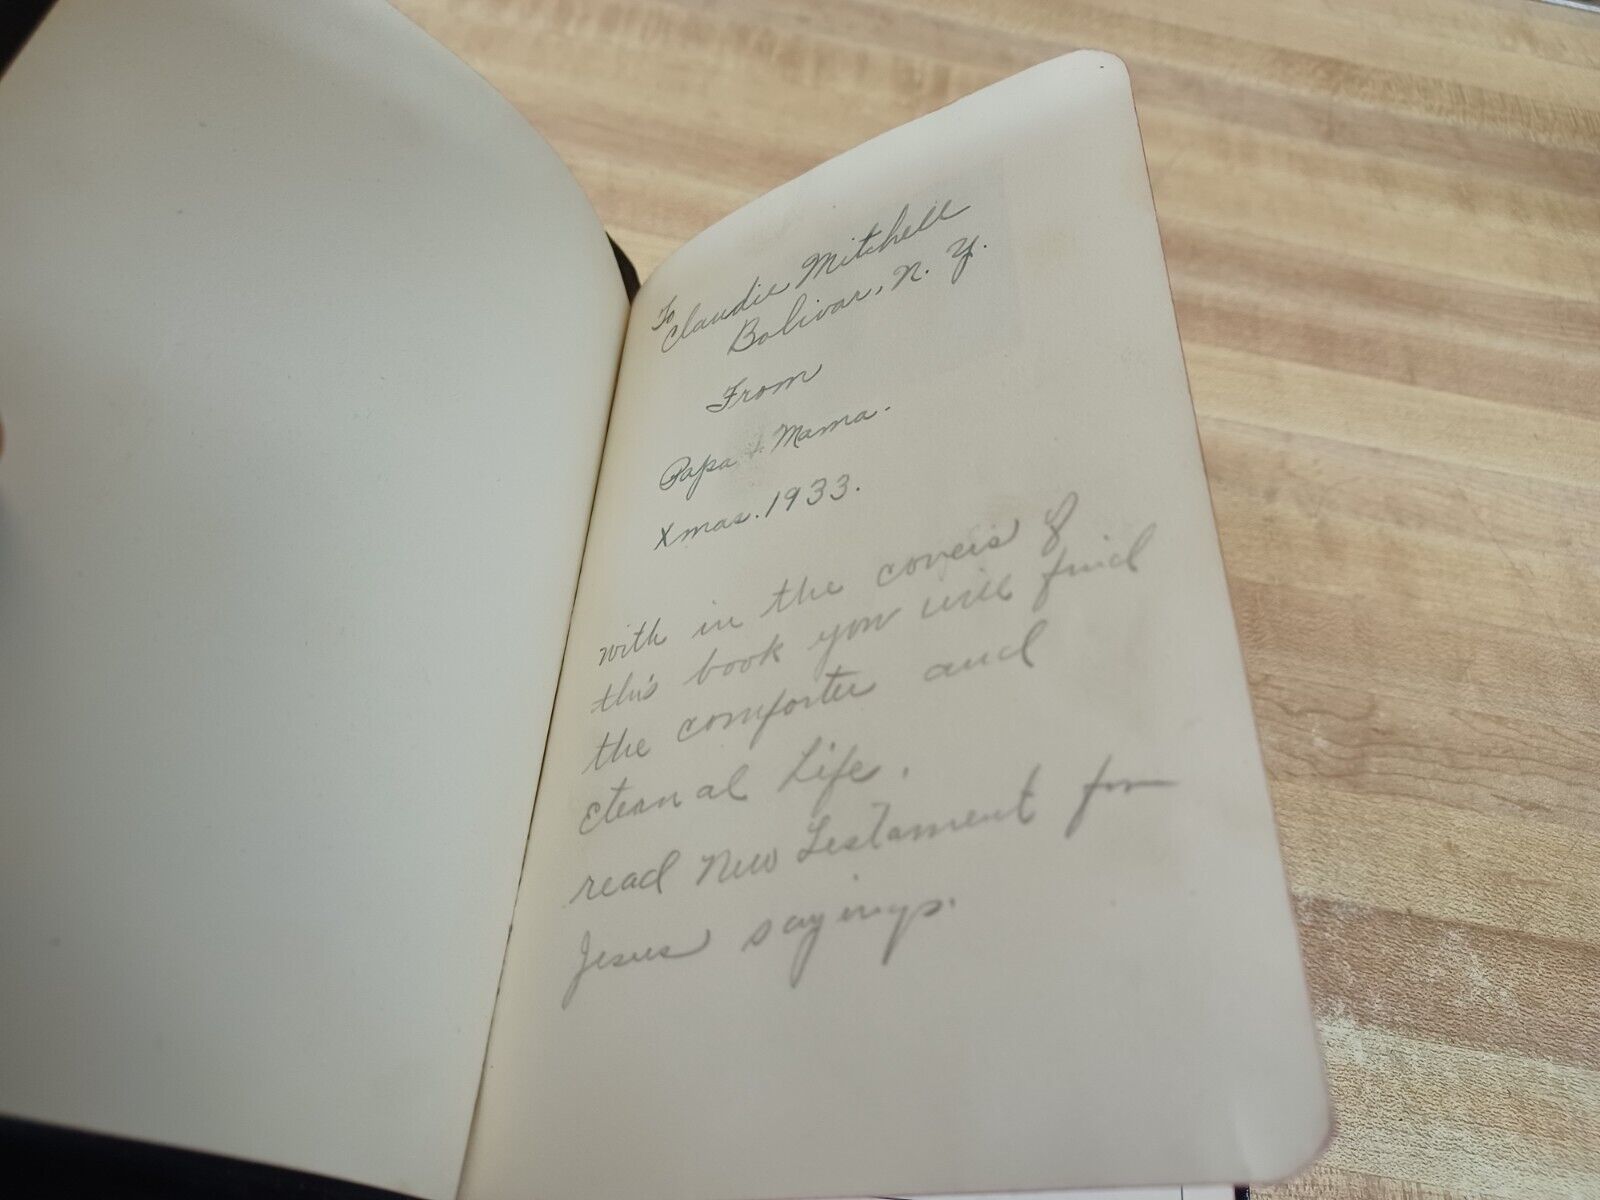 To
Claudie Mitchell
Bolivar, N. Y.
From
Papa & Mama.
Xmas. 1933.
with in the covers of
this book you will find
the comforter and
Eternal Life.
read New Testament for
Jesus sayings.